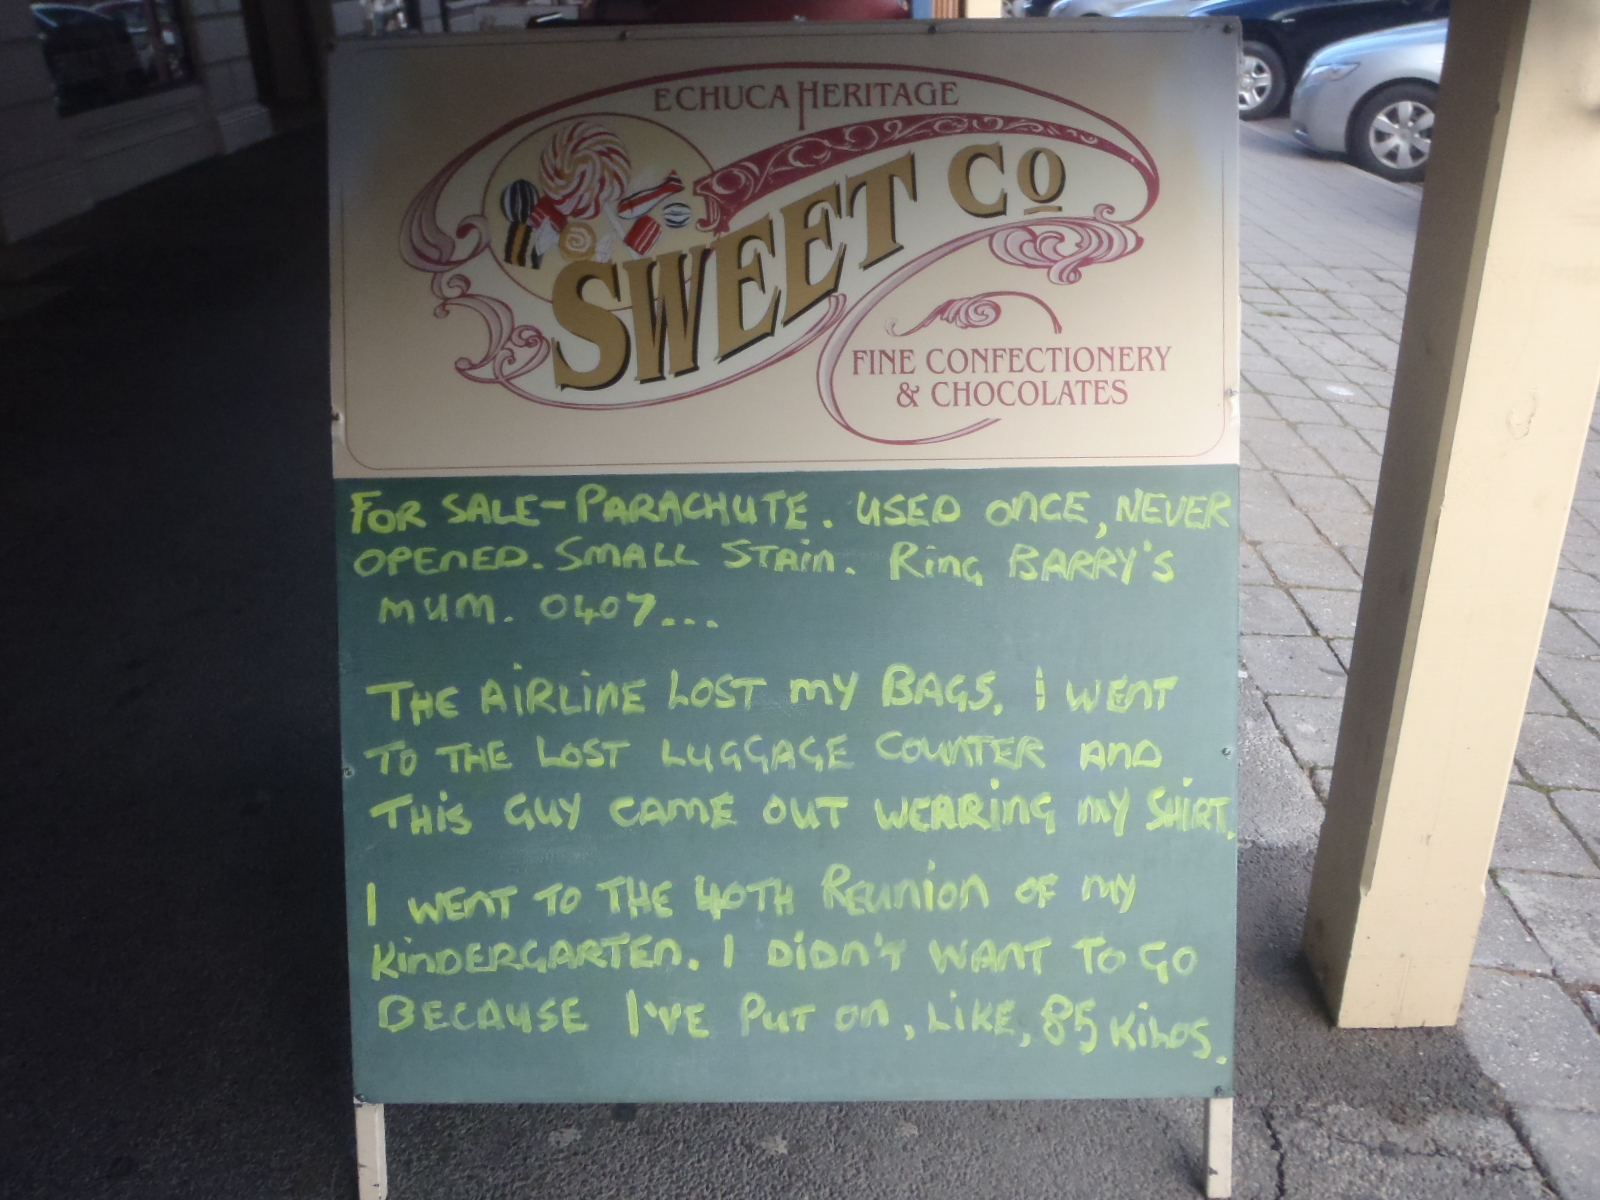 ECHUCA HERITAGE
SWEET Co
FINE CONFECTIONERY
& CHOCOLATES
FOR SALE-PARACHUTE. USED ONCE, NEVER
OPENED. SMALL STAIN. RING BARRY'S
MUM. 0407...
THE AIRLINE LOST MY BAGS. I WENT
TO THE LOST LUGGAGE COUNTER AND
THIS GUY CAME OUT WEARING MY SHIRT.
I WENT TO THE 40TH REUNION OF MY
KINDERGARTEN. I DIDN'T WANT TO GO
BECAUSE I'VE PUT ON, LIKE, 85 KILOS.